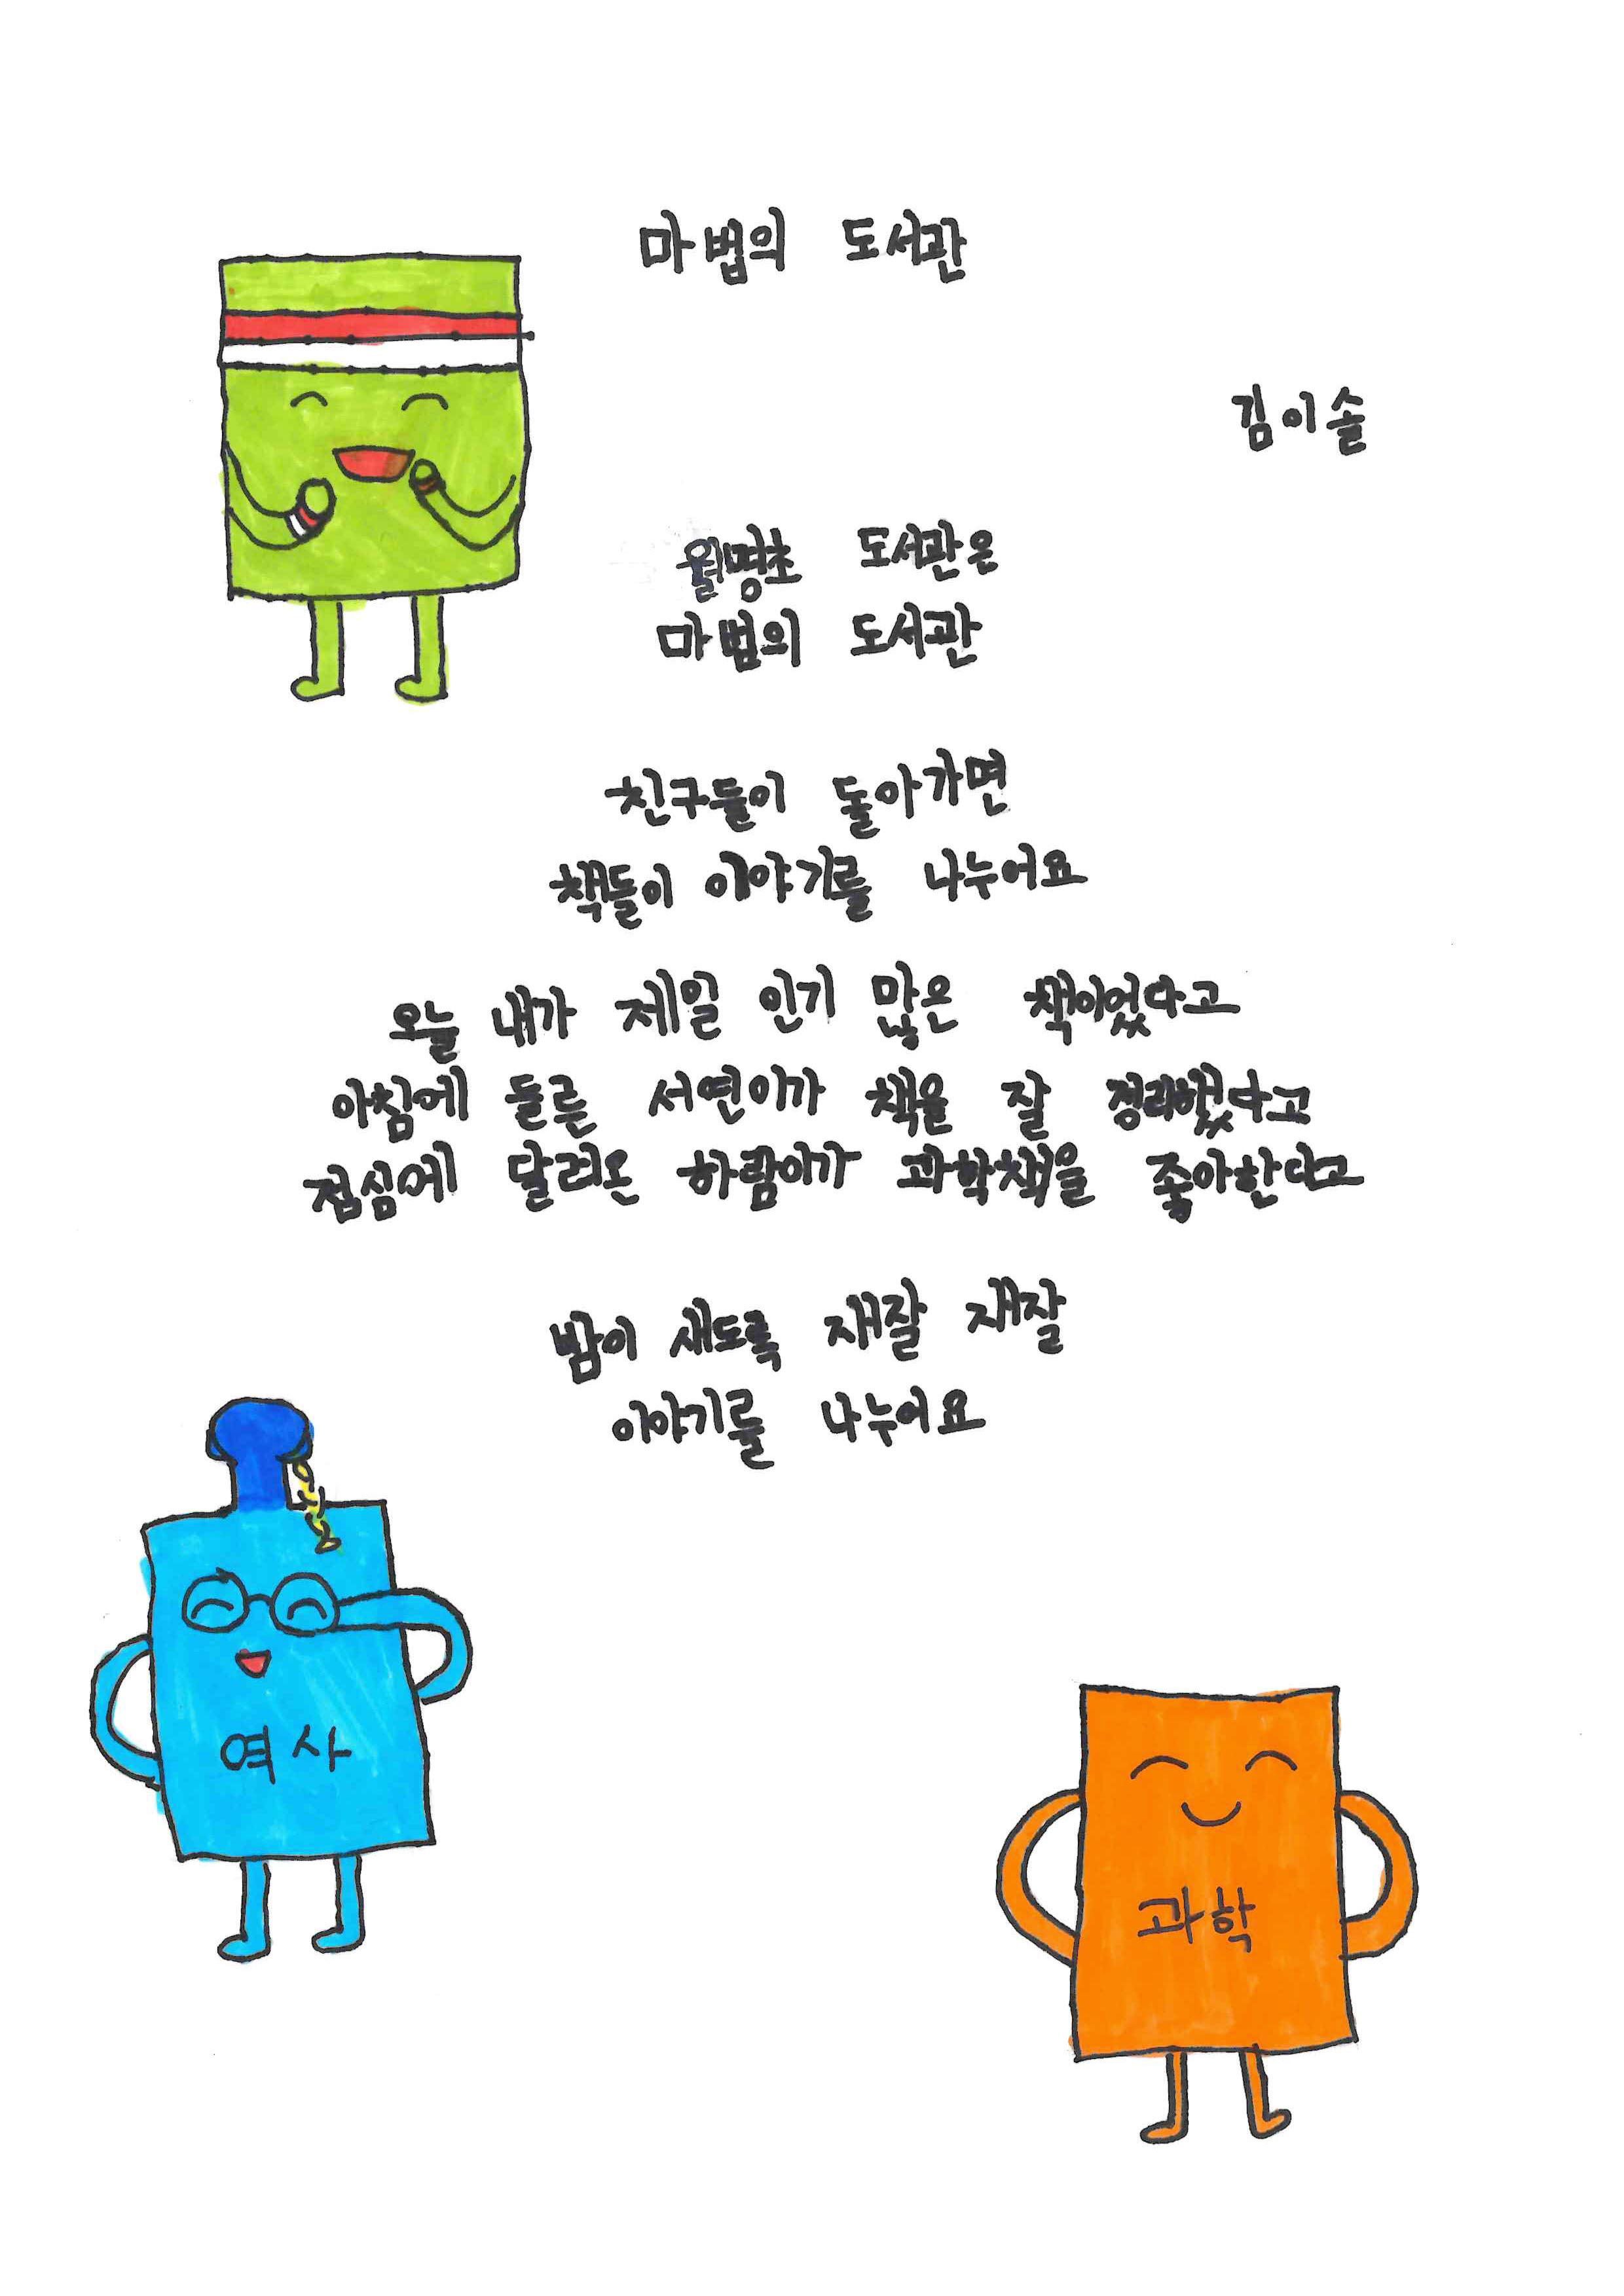 마법의 도서관
김이솔
월명초 도서관은
마법의 도서관
친구들이 돌아가면
책들이 이야기를 나누어요
오늘 내가 제일 인기 많은 책이었다고
아침에 들른 서연이가 책을 잘 정리했다고
점심에 달려온 하람이가 과학책을 좋아한다고
밤이 새도록 재잘 재잘
이야기를 나누어요
역사
과학